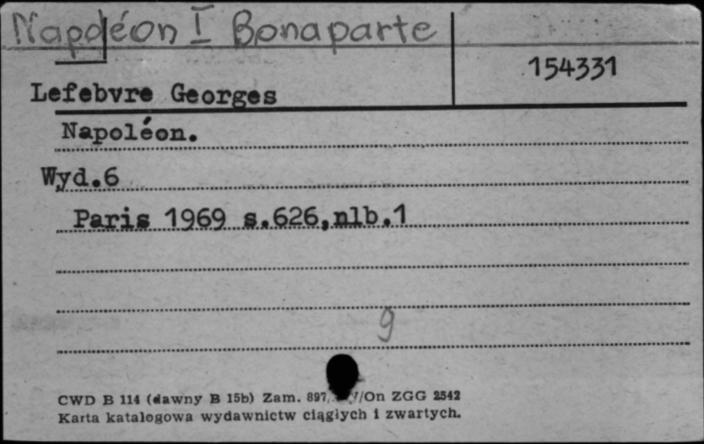 Napoléon I Bonaparte
154331
Lefebvre Georges
Napoléon.
Wyd.6
Paris 1969 s.626,nlb.1
9
CWD B 114 (dawny B 15b) Zam. 897, /On ZGG 2542
Karta katalogowa wydawnictw ciągłych i zwartych.